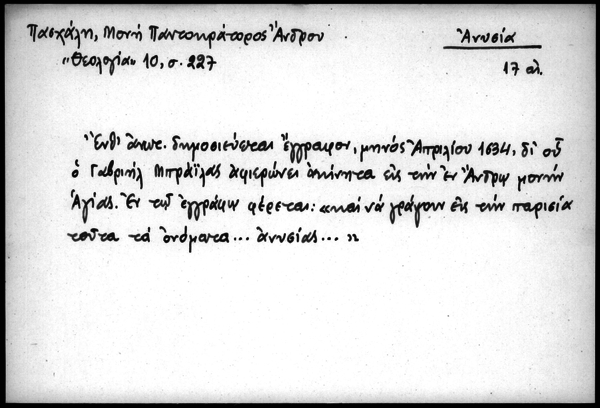 Πασχάλη, Μονή Παντοκράτορος Ἄνδρου
Ἀνυσία
«Θεολογία» 10, σ. 227
17 αἰ.
Ἔνθ' ἀνωτ. δημοσιεύεται ἔγγραφον, μηνός Ἀπριλίου 1634, δι' οὗ
ὁ Γαβριήλ Μπράϊλας ἀφιερώνει ἀκίνητα εἰς τήν ἐν Ἄνδρῳ μονήν
Ἁγίας. Ἐν τῷ ἐγγράφῳ φέρεται: «καί νά γράφουν εἰς τήν παρισία
τοῦτα τά ὀνόματα... ἀνυσίας... »